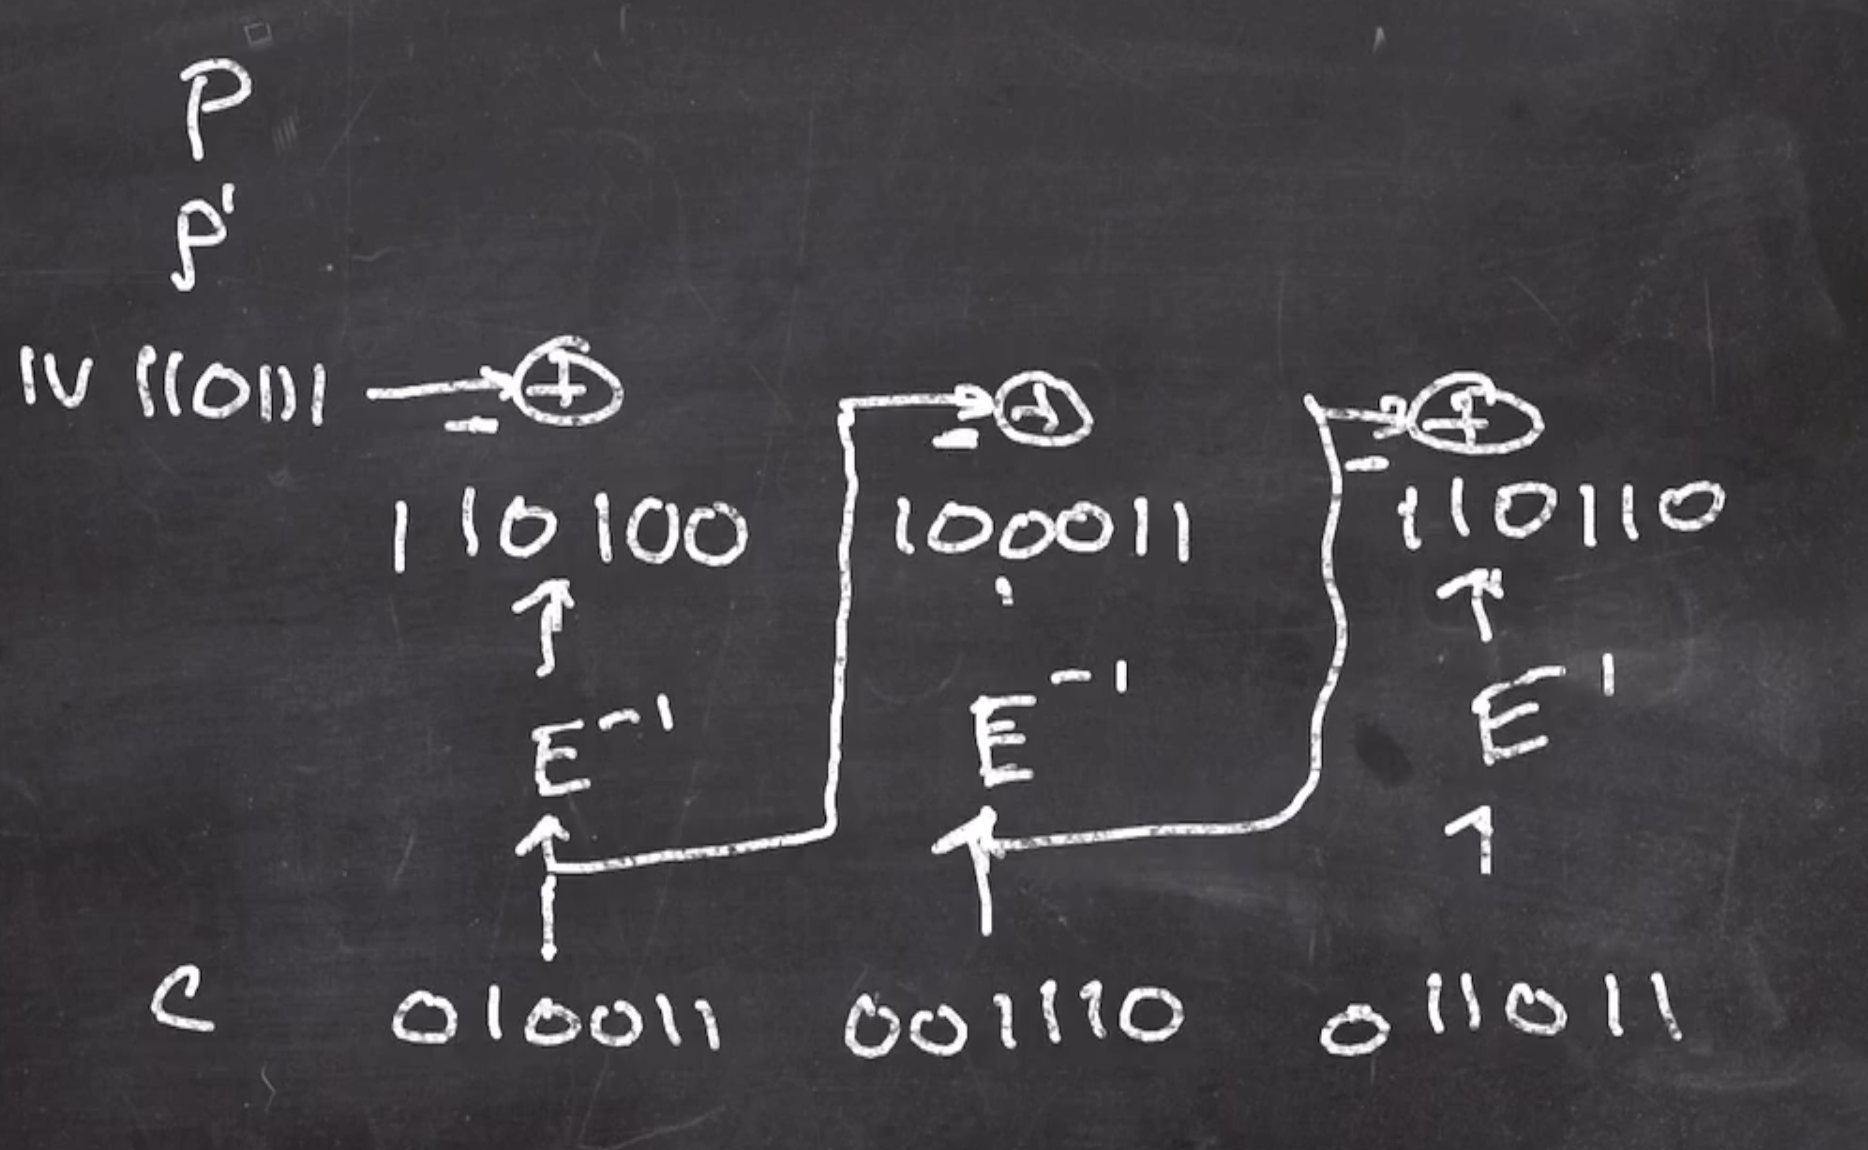 P
P'
IV 110111 → ⊕ ⊕ ⊕
110100 100011 110110
E⁻¹ E⁻¹ E¹
C 010011 001110 011011